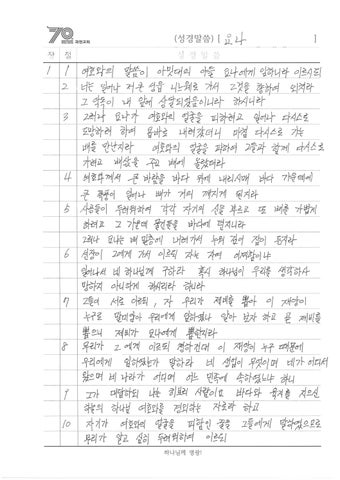 70
(성경말씀) [ 요나 ]
장 절 성 경 말 씀
1 1 여호와의 말씀이 아밋대의 아들 요나에게 임하니라 이르시되
2 너는 일어나 저 큰 성읍 니느웨로 가서 그것을 향하여 외치라
그 악독이 내 앞에 상달되었음이니라 하시니라
3 그러나 요나가 여호와의 얼굴을 피하려고 일어나 다시스로
도망하려 하여 욥바로 내려갔더니 마침 다시스로 가는
배를 만난지라 여호와의 얼굴을 피하여 그들과 함께 다시스로
가려고 배삯을 주고 배에 올랐더라
4 여호와께서 큰 바람을 바다 위에 내리시매 바다 가운데에
큰 폭풍이 일어나 배가 거의 깨지게 된지라
5 사공들이 두려워하여 각각 자기의 신을 부르고 또 배를 가볍게
하려고 그 가운데 물건들을 바다에 던지니라
그러나 요나는 배 밑층에 내려가서 누워 깊이 잠이 든지라
6 선장이 그에게 가서 이르되 자는 자여 어찌함이냐
일어나서 네 하나님께 구하라 혹시 하나님이 우리를 생각하사
망하지 아니하게 하시리라 하니라
7 그들이 서로 이르되, 자 우리가 제비를 뽑아 이 재앙이
누구로 말미암아 우리에게 임하였나 알아 보자 하고 곧 제비를
뽑으니 제비가 요나에게 뽑힌지라
8 무리가 그에게 이르되 청하건대 이 재앙이 누구 때문에
우리에게 임하였는가 말하라 네 생업이 무엇이며 네가 어디서
왔으며 네 나라가 어디며 어느 민족에 속하였느냐 하니
9 그가 대답하되 나는 히브리 사람이요 바다와 육지를 지으신
하늘의 하나님 여호와를 경외하는 자로라 하고
10 자기가 여호와의 얼굴을 피함인 줄을 그들에게 말하였으므로
무리가 알고 심히 두려워하여 이르되
하나님께 영광!